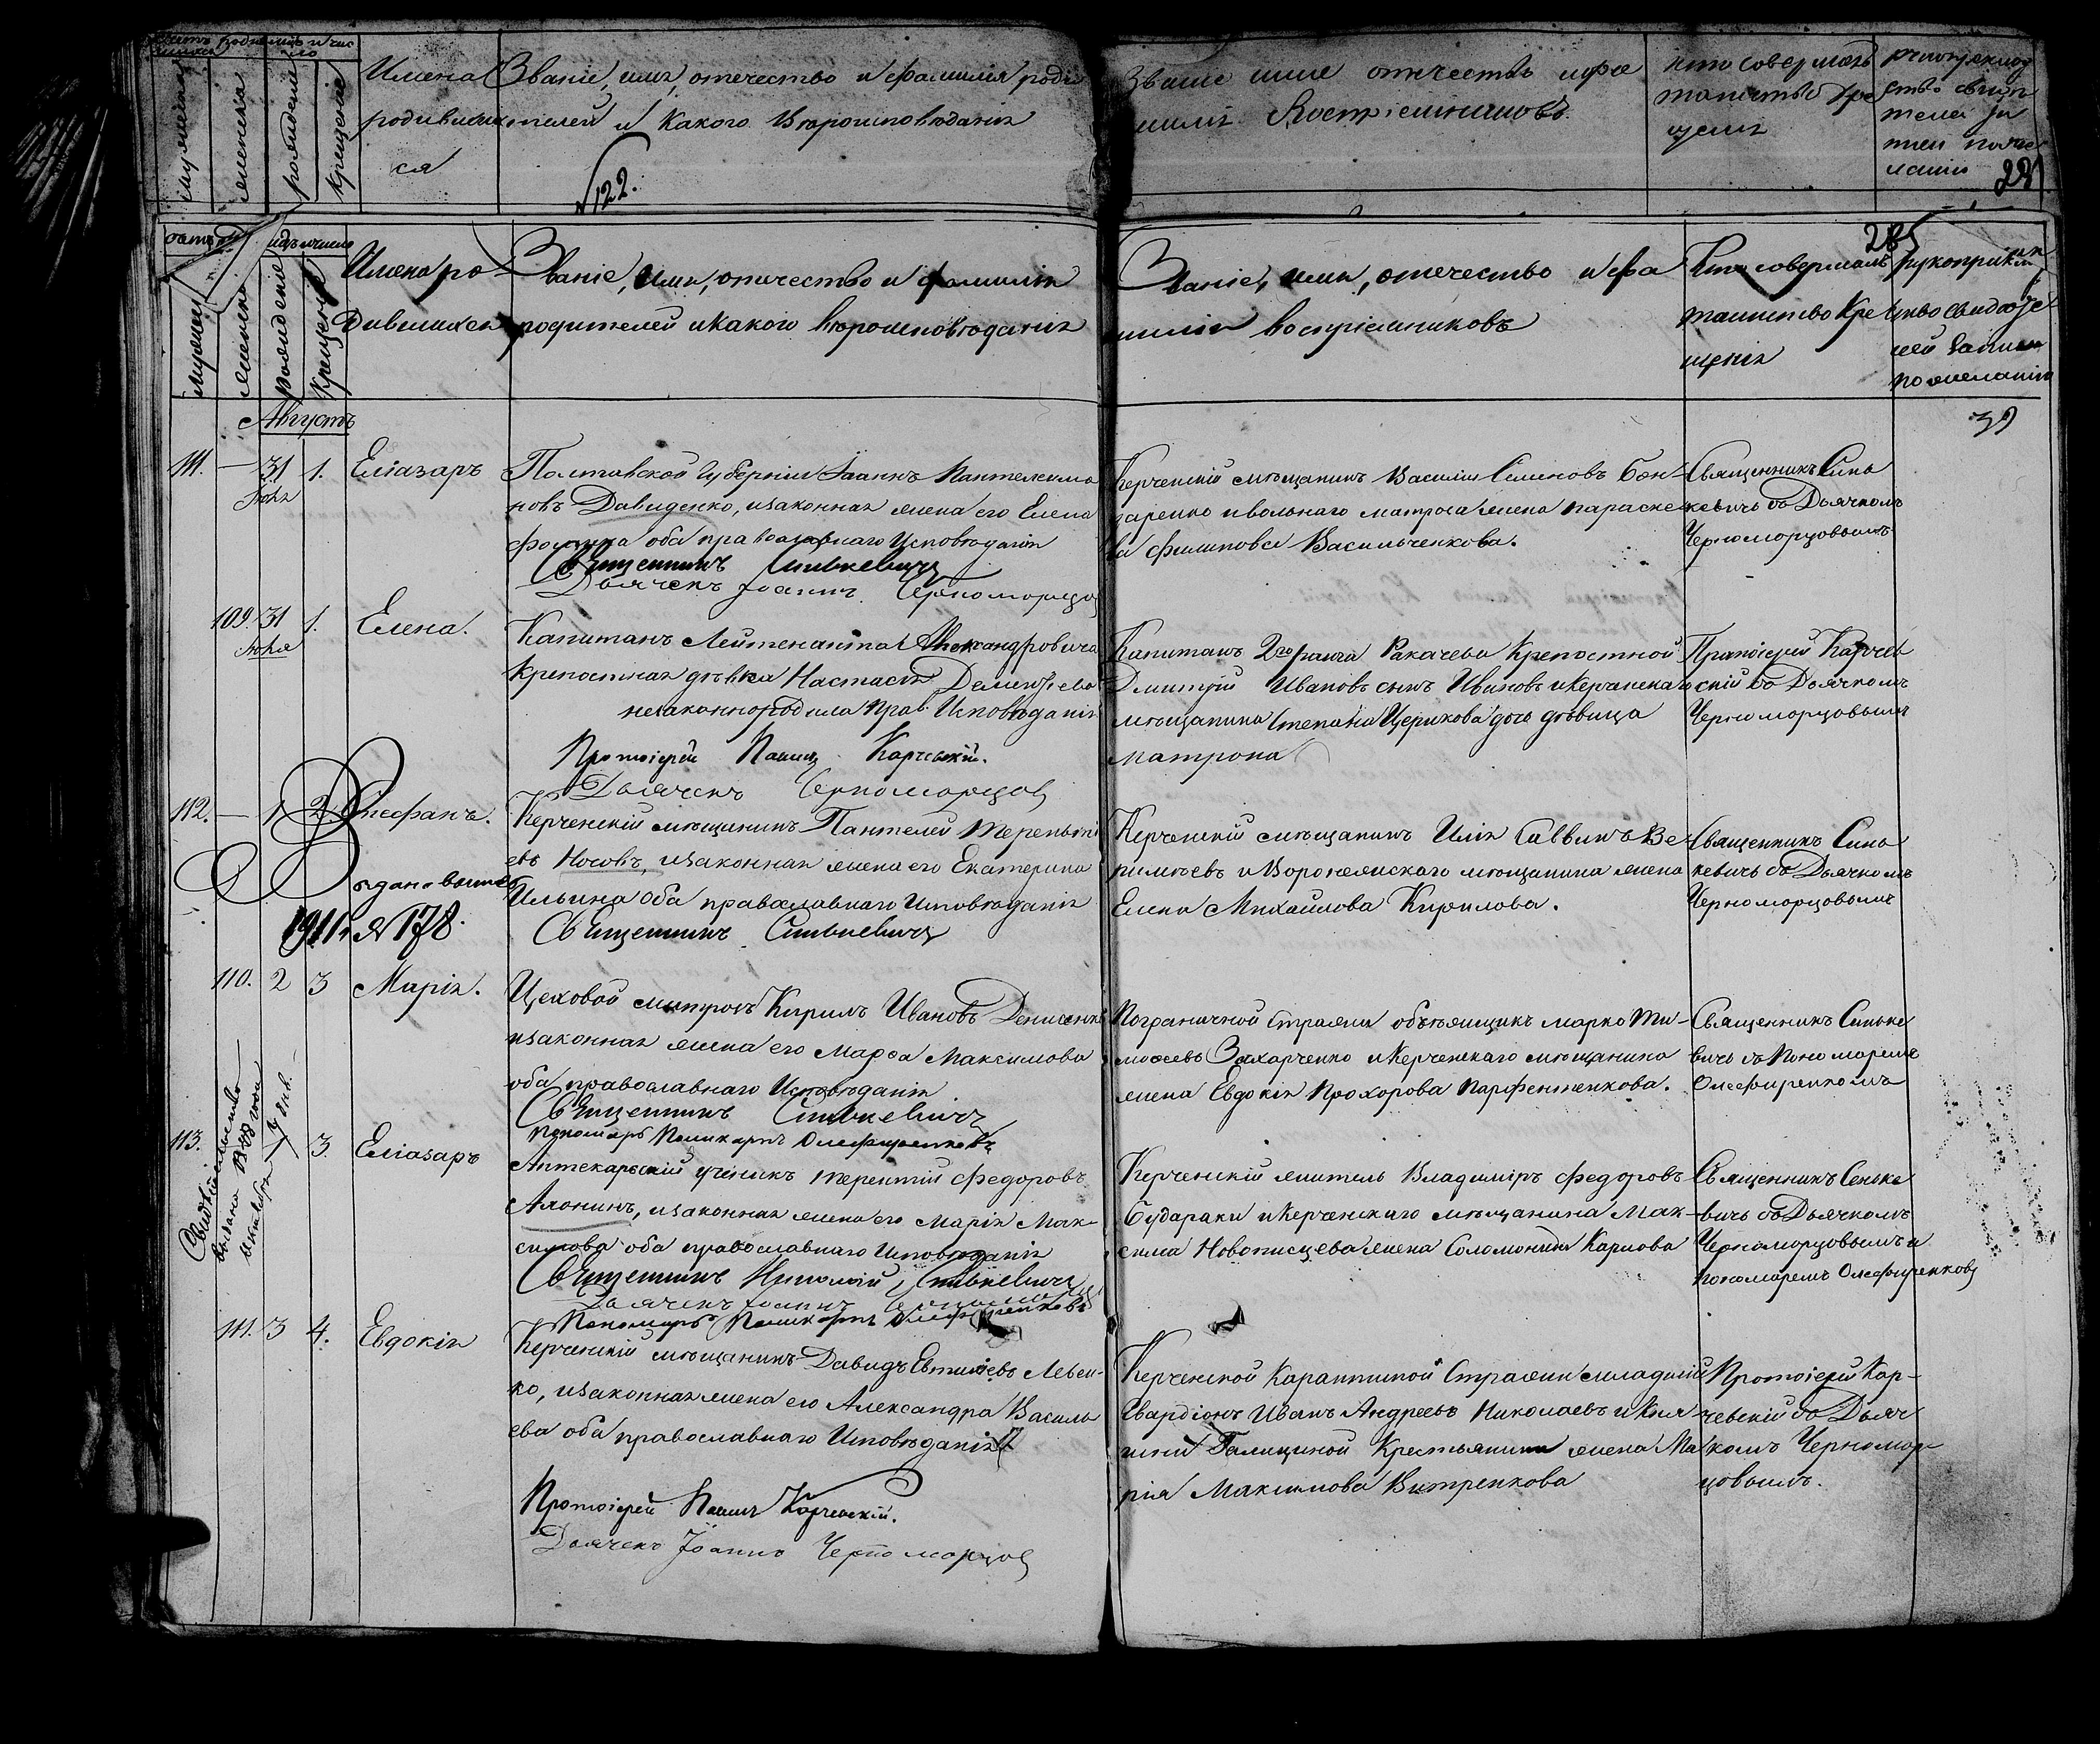 Имена
Званіе, имя, отечество и фамилія роди
родивших
телей и какого вѣроисповѣданія
ся
№122.
Званіе имя отечество и фа
миліи Воспріемниковъ
кто совершалъ
таинство Кре
щенія
мужеска
женска
рожденія
крещенія
Имена ро-
дившихся
Званіе, имя, отечество и фамилія
родителей и какого вѣроисповѣданія
Званіе, имя, отечество и фа
миліи воспріемниковъ
285
Кто совершалъ
таинство Кре
щенія
рукоприклад
ство свидѣте
лей записи
по желанію
39
Августъ
111. — 31 Іюля 1. Еліазаръ
Полтавской губерніи Іоаннъ Пантелеимо
новъ Давиденко, и законная жена его Елена
Фомина оба православнаго Исповѣданія
Священникъ Синькевичъ
Дьячекъ Іоаннъ Черноморцов
Керченскій мѣщанинъ Василій Семеновъ Бон-
даренко и вольнаго матроса жена Параске
ва Филипова Васильченкова.
Священникъ Синь
кевичъ съ Дьячкомъ
Черноморцовымъ
109. 31 Іюля 1. Елена.
Капитанъ Лейтенанта Александровича
крепостная дѣвка Настасія Дементьева
незаконнородила Прав. Исповѣданія
Протоіерей Павелъ Карчевскій.
Дьячекъ Черноморцов
Капитанъ 2го ранга Ракачева Крепостной
Дмитрій Ивановъ сынъ Ивановъ и Керченскаго
мѣщанина Степана Церикова дочь дѣвица
Матрона
Протоіерей Карчев
скій съ Дьячкомъ
Черноморцовымъ
112. — 1 2 Стефанъ.
Выдано выпись
1911 г. № 178.
Керченскій мѣщанинъ Пантелей Терентьі
евъ Носовъ, и законная жена его Екатерина
Ильина оба православнаго Исповѣданія
Священникъ Синькевичъ
Керченскій мѣщанинъ Илія Саввинъ Ве-
римѣевъ и Воронежскаго мѣщанина жена
Елена Михайлова Кирилова.
Священникъ Синь
кевичъ съ Дьячкомъ
Черноморцовымъ
110. 2 3 Марія.
Цеховой матросъ Кирилъ Ивановъ Денисенко
и законная жена его Марѳа Максимова
оба православнаго Исповѣданія
Священникъ Синькевичъ
Пономарь Поликарпъ Олефиренковъ
Пограничной Стражи объѣзщикъ Марко Ти-
моѳеевъ Захарченко и Керченскаго мѣщанина
жена Евдокія Прохорова Парфентенкова.
Священникъ Синьке
вичъ съ Пономаремъ
Олефиренкомъ
113. — 1 3. Еліазаръ
Свидѣтельство
выдано
Аптекарскій ученикъ Терентій Федоровъ
Алонинъ, и законная жена его Марія Мак-
симова оба православнаго Исповѣданія
Священникъ Николай Синькевичъ
Дьячекъ Іоаннъ Черноморцов
Пономарь Поликарпъ Олефиренковъ
Керченскій житель Владиміръ Федоровъ
Будараки и Керченскаго мѣщанина Мак-
сима Новописцева жена Соломонида Карпова
Священникъ Синьке
вичъ съ Дьячкомъ
Черноморцовымъ и
пономаремъ Олефиренковъ
111. 3 4. Евдокія
Керченскій мѣщанинъ Давидъ Евтихіевъ Левен-
ко, и законная жена его Александра Василь
ева оба православнаго Исповѣданія
Протоіерей Павелъ Карчевскій.
Дьячекъ Іоаннъ Черноморцов
Керченской Карантинной Стражи младшій
Гвардіонъ Иванъ Андреевъ Николаевъ и Кня
гини Галициной Крестьянина жена Ма
рія Максимова Витренкова
Протоіерей Кар-
чевскій съ Дьяч
комъ Черномор
цовымъ.